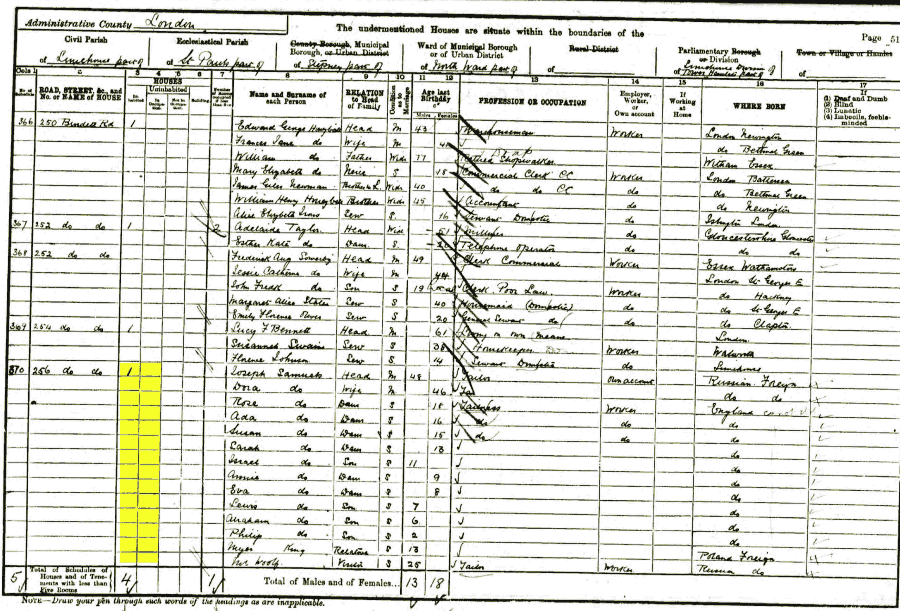 Administrative County London
The undermentioned Houses are situate within the boundaries of the
Page 51
Civil Parish
Ecclesiastical Parish
County Borough, Municipal Borough, or Urban District
Ward of Municipal Borough or of Urban District
Rural District
Parliamentary Borough or Division
Town or Village or Hamlet
of Limehouse part of
of St Pauls part of
of Stepney part of
of North Ward part of
of Limehouse Division of Tower Hamlets part of
of
Cols 1 2 3 4 5 6 7 8 9 10 11 12 13 14 15 16 17
No. of Schedule
ROAD, STREET, &c., and No. or NAME of HOUSE
HOUSES
Inhabited
Uninhabited
In Occupation
Not in Occupation
Building
Name and Surname of each Person
RELATION to Head of Family
Condition as to Marriage
Age last Birthday of
Males
Females
PROFESSION OR OCCUPATION
Employer, Worker, or Own account
If Working at Home
WHERE BORN
(1) Deaf and Dumb
(2) Blind
(3) Lunatic
(4) Imbecile, feeble-minded
366 250 Rd 1 Edward George Head M 43 Warehouseman Worker London Newington
Frances Jane do Wife M do Bethnal Green
William do Father Wid 77 Retired Shopwalker Witham Essex
Mary Elizabeth do Niece S 18 Commercial Clerk Worker London Battersea
James Giles Newman Brother in L Wid 40 do do do do Bethnal Green
William Henry Brother Wid 45 Accountant do do Newington
Alice Elizabeth Serv S 16 Servant Domestic do Islington London
367 252 do do 1 2 Adelaide Taylor Head Wid 51 Milliner do Gloucestershire Gloucester
Esther Kate do Daur S Telephone Operator do do do
368 252 do do Frederick Aug Sowerby Head M 49 Clerk Commercial Worker Essex Walthamstow
Jessie Catherine do Wife M 44 London St Georges E
John Fredk do Son S 19 Clerk Poor Law Worker do Hackney
Margaret Alice States Serv S 40 Housemaid (Domestic) do do St Georges E
Emily Florence Serv S 20 General Servant do do do Clapton
369 254 do do 1 Lucy F Bennett Head M 61 Living on own means London
Susannah Swain Serv S 38 Housekeeper Worker Walworth
Florence Johnson Serv S 14 Servant Domestic do Limehouse
370 256 do do 1 Joseph Samuels Head M 48 Tailor Own account Russian Foreign
Dora do Wife M 46 do do
Rose do Daur S 18 Tailoress Worker England
Ada do Daur S 16 do do do
Susan do Daur S 15 do do do
Sarah do Daur S 13 do
Israel do Son S 11 do
Annie do Daur S 9 do
Eva do Daur S 8 do
Lewis do Son S 7 do
Abraham do Son S 6 do
Philip do Son S 2 do
Myer King Relative S 13 Poland Foreign
Woolf S 25 Tailor Worker Russia do
5 Total of Schedules of Houses and of Tenements with less than Five Rooms 4 1 Total of Males and of Females... 13 18
NOTE—Draw your pen through such words of the headings as are inapplicable.